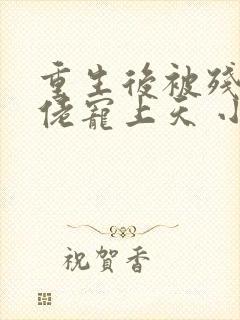 重生後被殘
佬寵上天 小
祝賀香